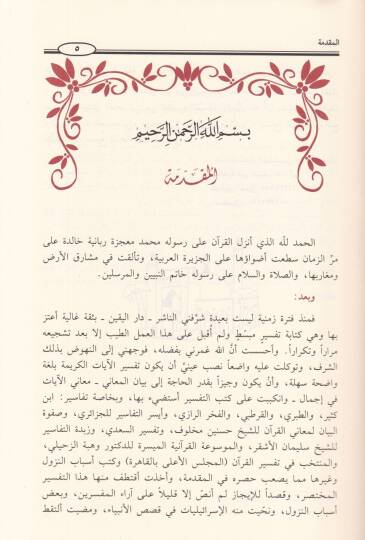 المقدمة
٥
بسم الله الرحمن الرحيم
المقدمة
الحمد لله الذي أنزل القرآن على رسوله محمد معجزة ربانية خالدة على
مرّ الزمان سطعت أضواؤها على الجزيرة العربية، وتألقت في مشارق الأرض
ومغاربها، والصلاة والسلام على رسوله خاتم النبيين والمرسلين.
وبعد:
فمنذ فترة زمنية ليست بعيدة شرفني الناشر ـ دار اليقين ـ بثقة غالية أعتز
بها وهي كتابة تفسيرٍ مبسّطٍ ولم أُقبل على هذا العمل الطيب إلا بعد تشجيعه
مراراً وتكراراً. وأحسست أنَّ الله غمرني بفضله، فوجهني إلى النهوض بذلك
الشرف، وتوكلت عليه واضعاً نصب عينيّ أن يكون تفسير الآيات الكريمة بلغة
واضحة سهلة، وأنْ يكون وجيزاً بقدر الحاجة إلى بيان المعاني ـ معاني الآيات
في إجمال ـ وانكببت على كتب التفسير أستضيء بها، وبخاصة تفاسير: ابن
كثير، والطبري، والقرطبي، والفخر الرازي، وأيسر التفاسير للجزائري، وصفوة
البيان لمعاني القرآن للشيخ حسنين مخلوف، وتفسير السعدي، وزبدة التفاسير
للشيخ سليمان الأشقر، والموسوعة القرآنية الميسرة للدكتور وهبة الزحيلي،
والمنتخب في تفسير القرآن (المجلس الأعلى بالقاهرة) وكتب أسباب النزول
وغيرها مما يصعب حصره في المقدمة، وأخذت أقتطف منها هذا التفسير
المختصر، وقصداً للإيجاز لم أنصّ إلا قليلاً على آراء المفسرين، وبعض
أسباب النزول، ونحّيت منه الإسرائيليات في قصص الأنبياء، ومضيت ألتقط